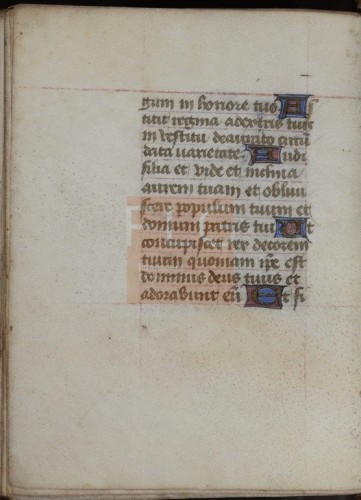 gum in honore tuo As
titit regina a dextris tuis
in vestitu deaurato circu
data varietate Audi
filia et vide et inclina
aurem tuam et oblivi
scere populum tuum et
domum patris tui Et
concupiscet rex decorem
tuum quoniam ipe est
dominus deus tuus et
adorabunt eu Et fi